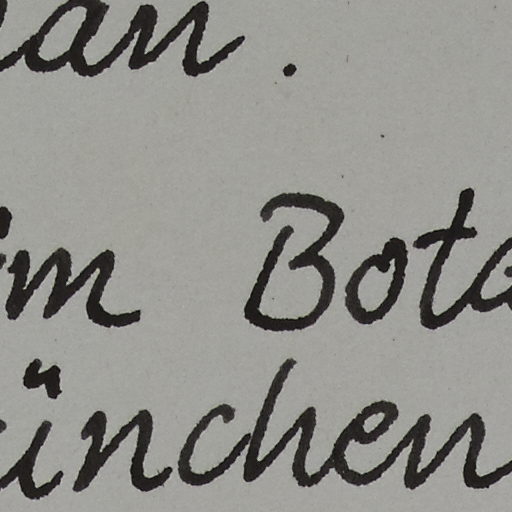 an.
m Bota
ünchen